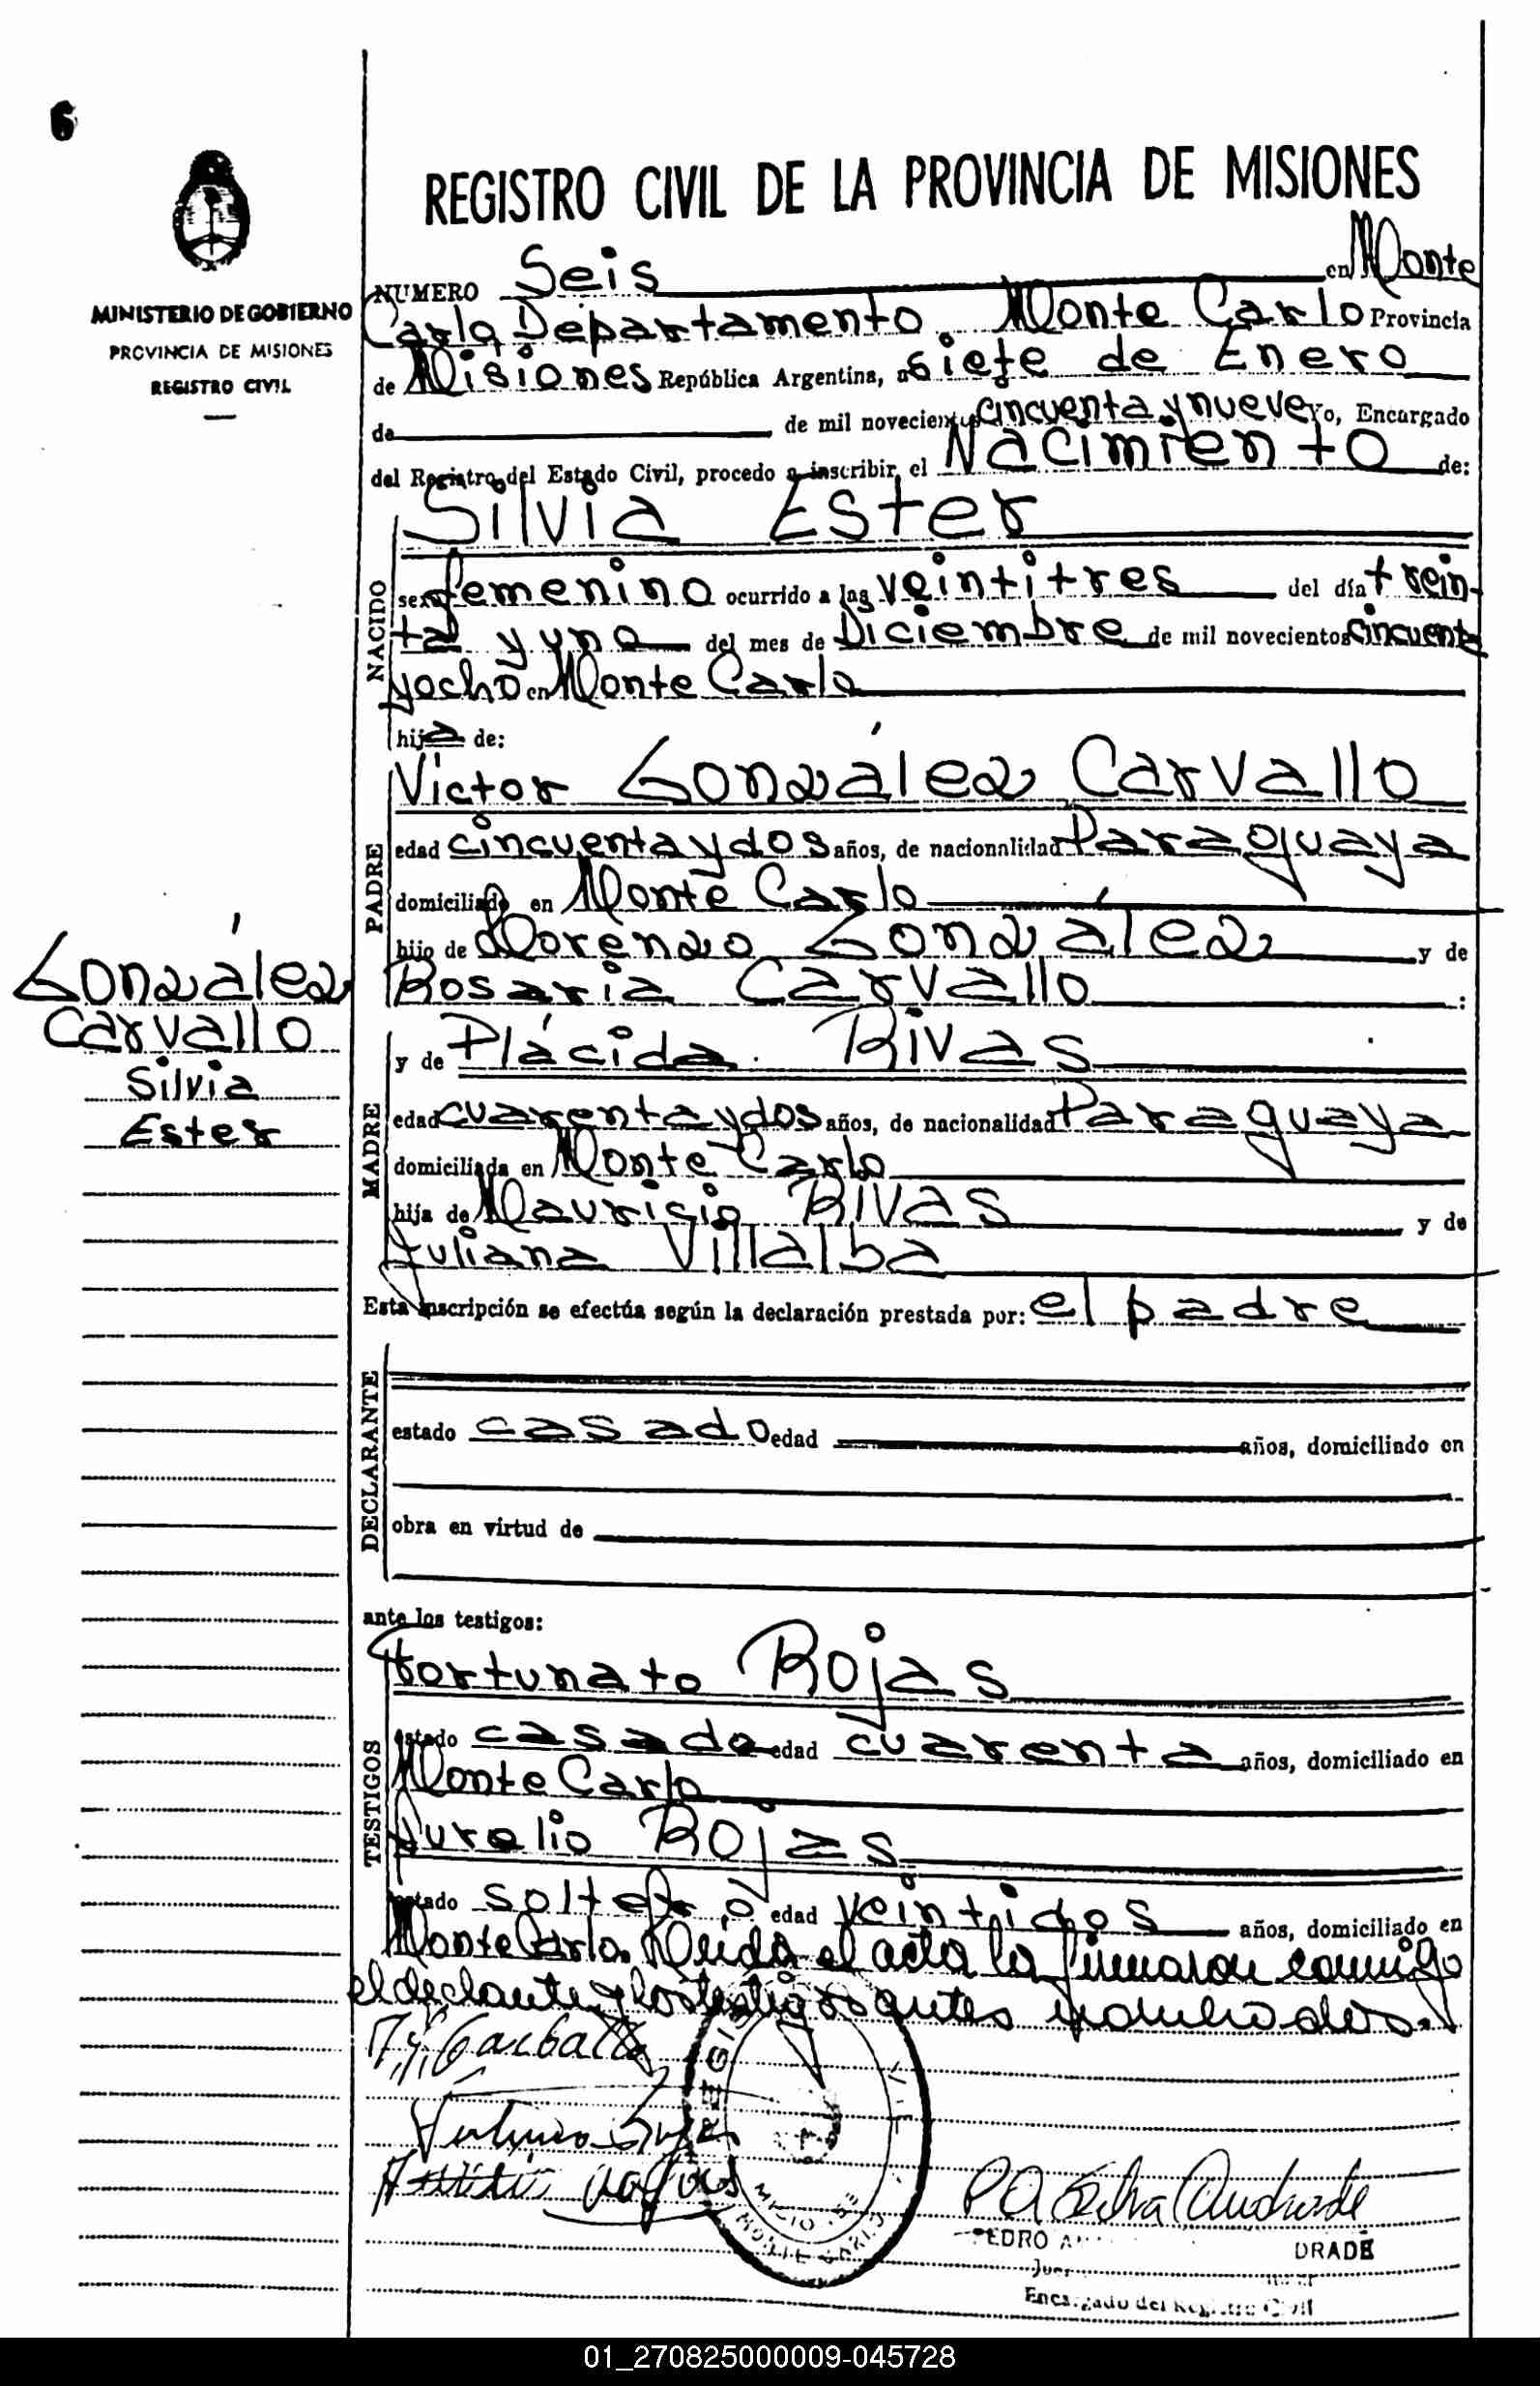 6
MINISTERIO DE GOBIERNO
PROVINCIA DE MISIONES
REGISTRO CIVIL
González
Carvallo
Silvia
Ester
REGISTRO CIVIL DE LA PROVINCIA DE MISIONES
NUMERO Seis en Monte
Carlo, Departamento Monte Carlo Provincia
de Misiones República Argentina, a siete de Enero
de de mil novecientos cincuenta y nueve Yo, Encargado
del Registro del Estado Civil, procedo a inscribir el Nacimiento de:
NACIDO
Silvia Ester
sexo femenino ocurrido a las veintitres del día trein-
ta y uno del mes de Diciembre de mil novecientos cincuenta
y ocho en Monte Carlo
hija de:
PADRE
Victor González Carvallo
edad cincuenta y dos años, de nacionalidad Paraguaya
domiciliado en Monte Carlo
hijo de Lorenzo González y de
Rosaria Carvallo :
MADRE
y de Plácida Rivas
edad cuarenta y dos años, de nacionalidad Paraguaya
domiciliada en Monte Carlo
hija de Mauricio Rivas y de
Juliana Villalba
Esta inscripción se efectúa según la declaración prestada por: el padre
DECLARANTE
estado casado edad años, domiciliado en
obra en virtud de
ante los testigos:
TESTIGOS
Fortunato Rojas
estado casado edad cuarenta años, domiciliado en
Monte Carlo
Aurelio Rojas
estado soltero edad veintidos años, domiciliado en
Monte Carlo. Leida el acta la firmaron conmigo
el declante y los testigos antes nombrados.
REGIS
MONTE CARLO
PEDRO DRADE
Encargado del Registro Civil
01_270825000009-045728